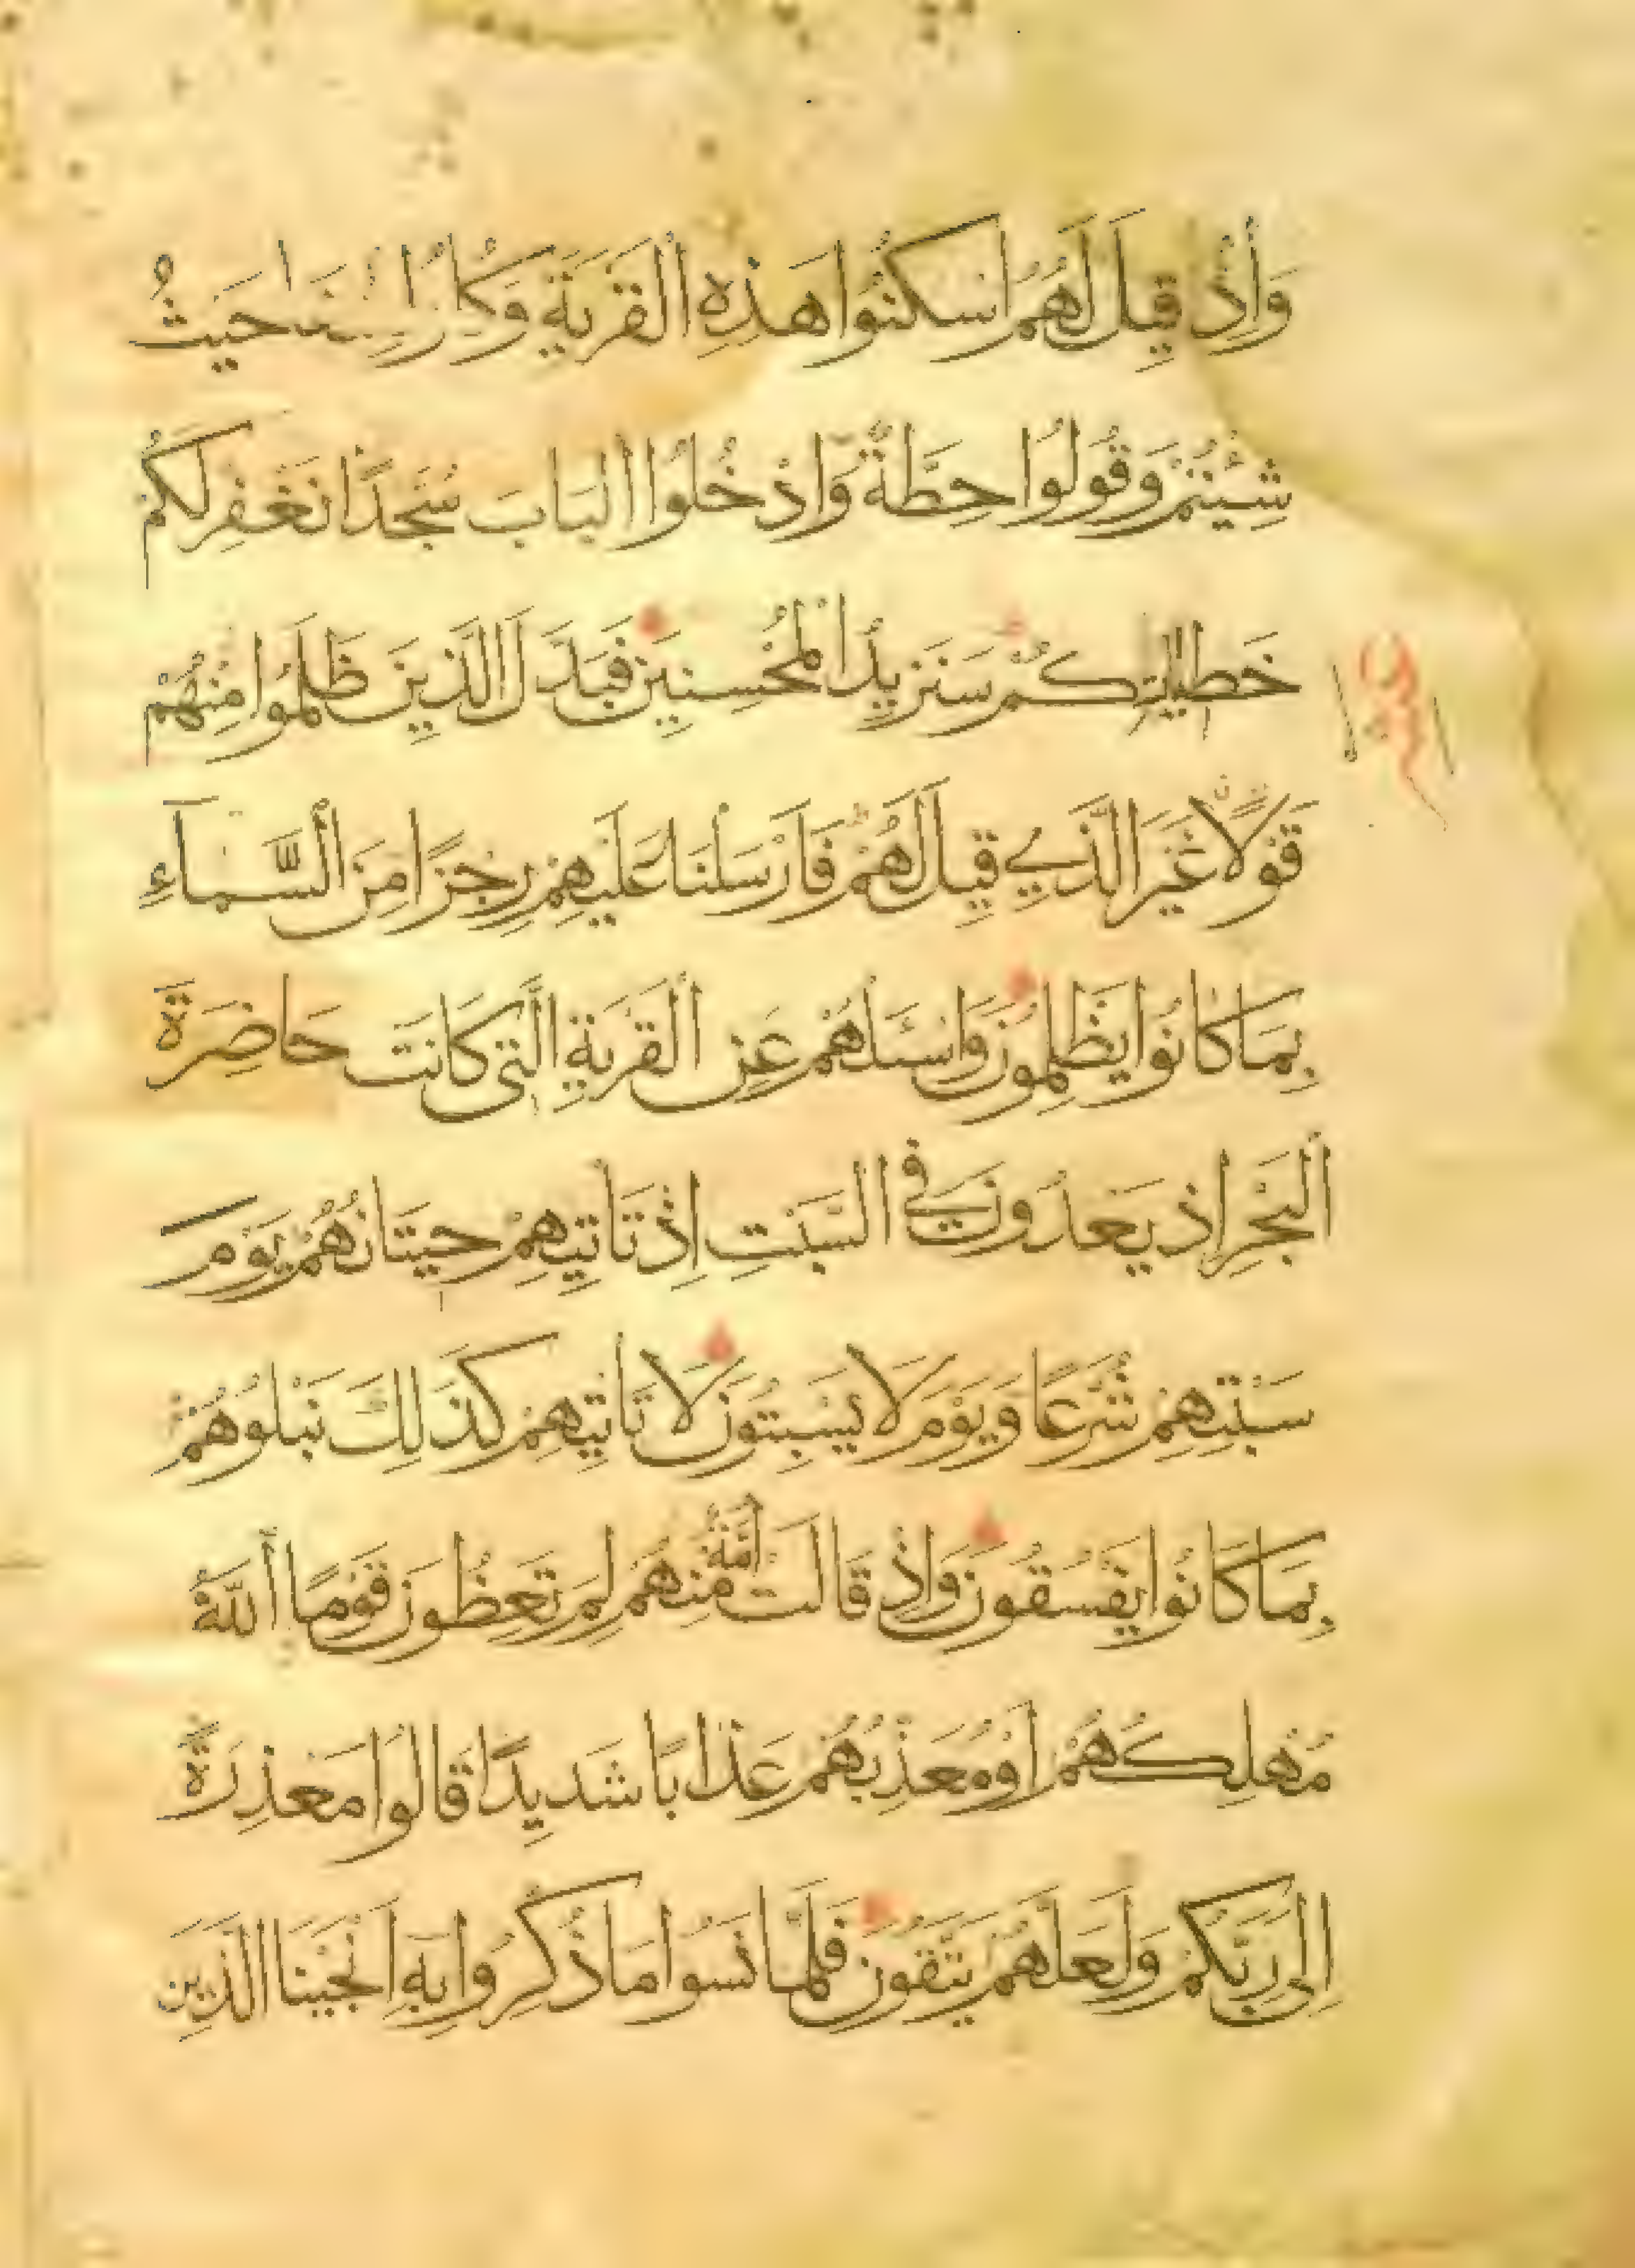 وَإِذْ قِيلَ لَهُمُ اسْكُنُوا هَذِهِ الْقَرْيَةَ وَكُلُوا مِنْهَا حَيْثُ
شِيْتُمْ وَقُولُوا حِطَّةٌ وَادْخُلُوا الْبَابَ سُجَّدًا نَغْفِرْ لَكُمْ
خَطِيئَاتِكُمْ سَنَزِيدُ الْمُحْسِنِينَ فَبَدَّلَ الَّذِينَ ظَلَمُوا مِنْهُمْ
قَوْلًا غَيْرَ الَّذِي قِيلَ لَهُمْ فَأَرْسَلْنَا عَلَيْهِمْ رِجْزًا مِنَ السَّمَاءِ
بِمَا كَانُوا يَظْلِمُونَ وَاسْئَلْهُمْ عَنِ الْقَرْيَةِ الَّتِي كَانَتْ حَاضِرَةَ
الْبَحْرِ إِذْ يَعْدُونَ فِي السَّبْتِ إِذْ تَأْتِيهِمْ حِيتَانُهُمْ يَوْمَ
سَبْتِهِمْ شُرَّعًا وَيَوْمَ لَا يَسْبِتُونَ لَا تَأْتِيهِمْ كَذَلِكَ نَبْلُوهُمْ
بِمَا كَانُوا يَفْسُقُونَ وَإِذْ قَالَتْ أُمَّةٌ مِنْهُمْ لِمَ تَعِظُونَ قَوْمًا اللَّهُ
مُهْلِكُهُمْ أَوْ مُعَذِّبُهُمْ عَذَابًا شَدِيدًا قَالُوا مَعْذِرَةً
إِلَى رَبِّكُمْ وَلَعَلَّهُمْ يَتَّقُونَ فَلَمَّا نَسُوا مَا ذُكِّرُوا بِهِ أَنْجَيْنَا الَّذِينَ